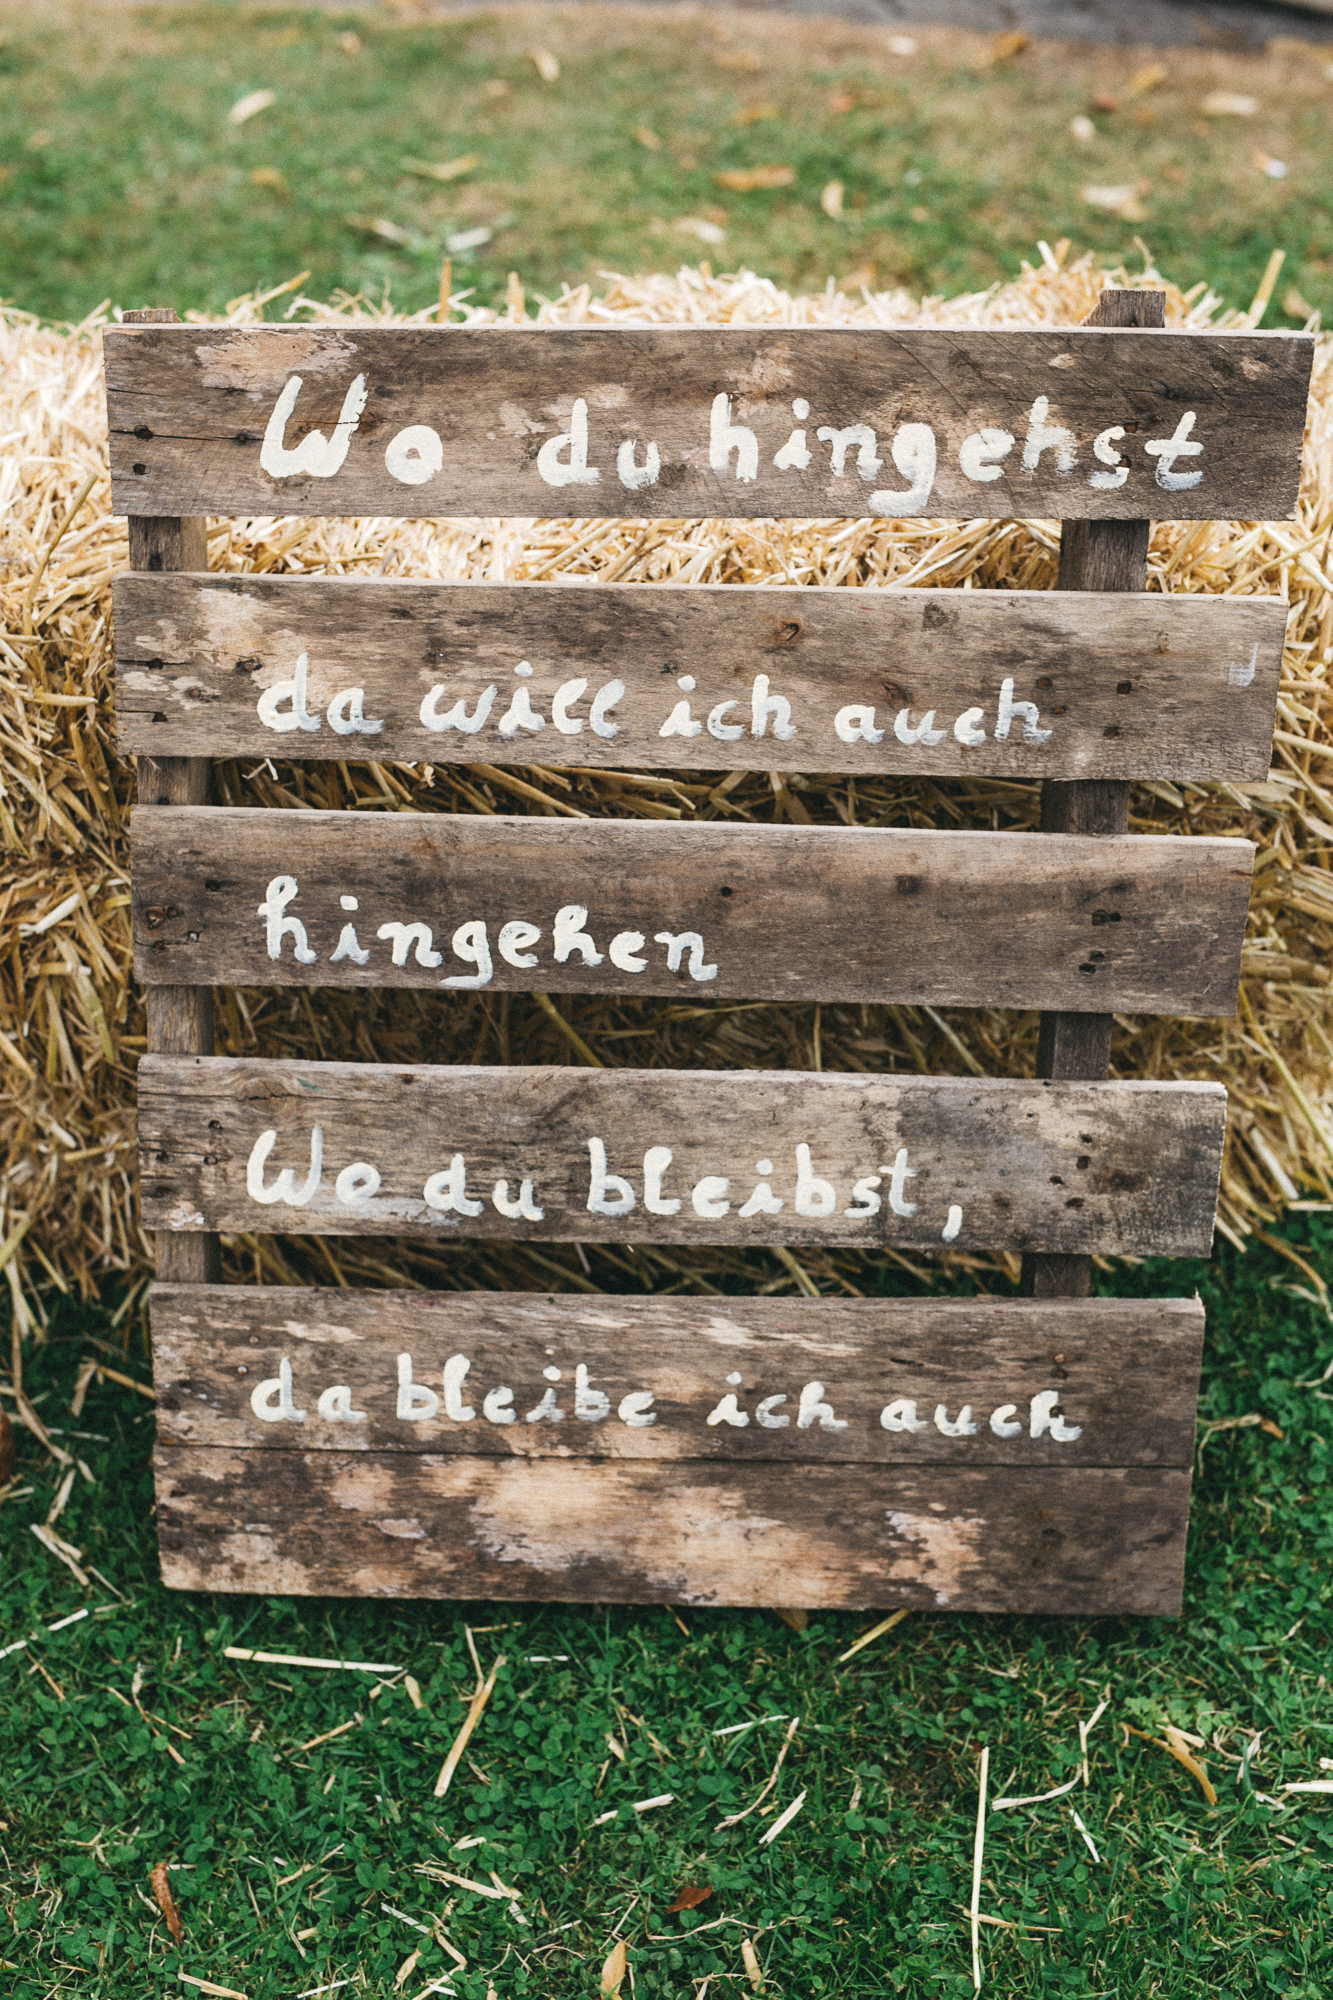 Wo du hingehst
da will ich auch
hingehen
Wo du bleibst,
da bleibe ich auch